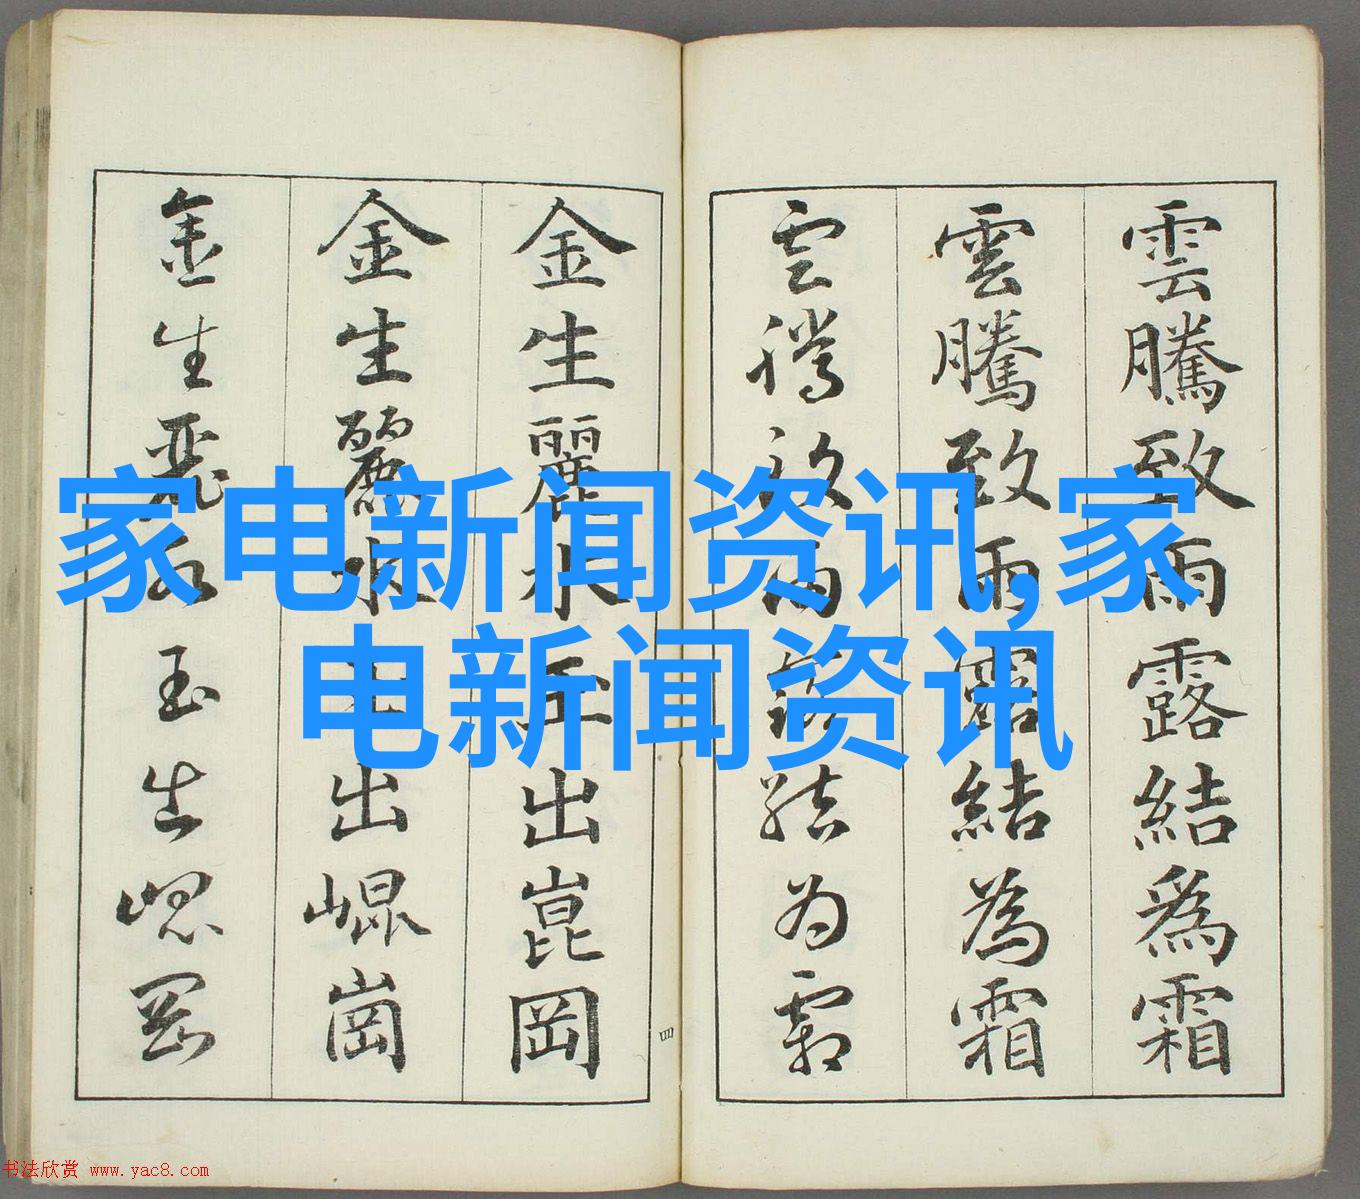 雲騰致雨露結爲霜
雲騰致雨露結為霜
雲騰致雨露結为霜
金生麗水玉出崑岡
金生麗水玉出崐崗
金生麗水玉出崐岡
四
家电新闻资讯,家
电新闻资讯
书法欣赏 www.yac8.com